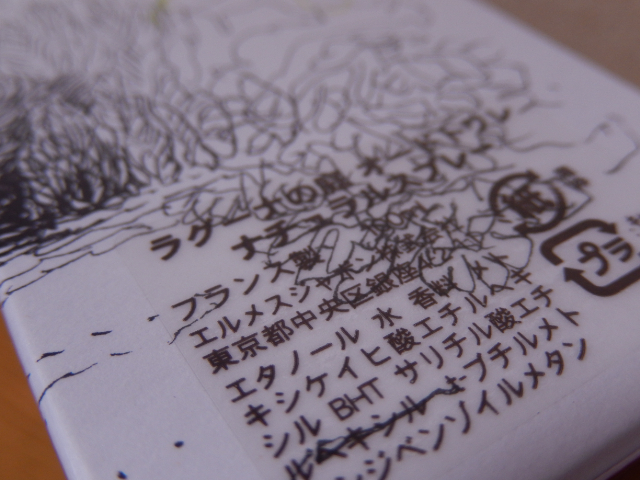 ラグーナの庭 オードトワレ
ナチュラルスプレー
フランス製
エルメスジャポン株式会社
東京都中央区銀座
エタノール 水 香料 メト
キシケイヒ酸エチルヘキ
シル BHT サリチル酸エチ
ルヘキシル t-ブチルメト
ンジベンゾイルメタン
紙
プラ